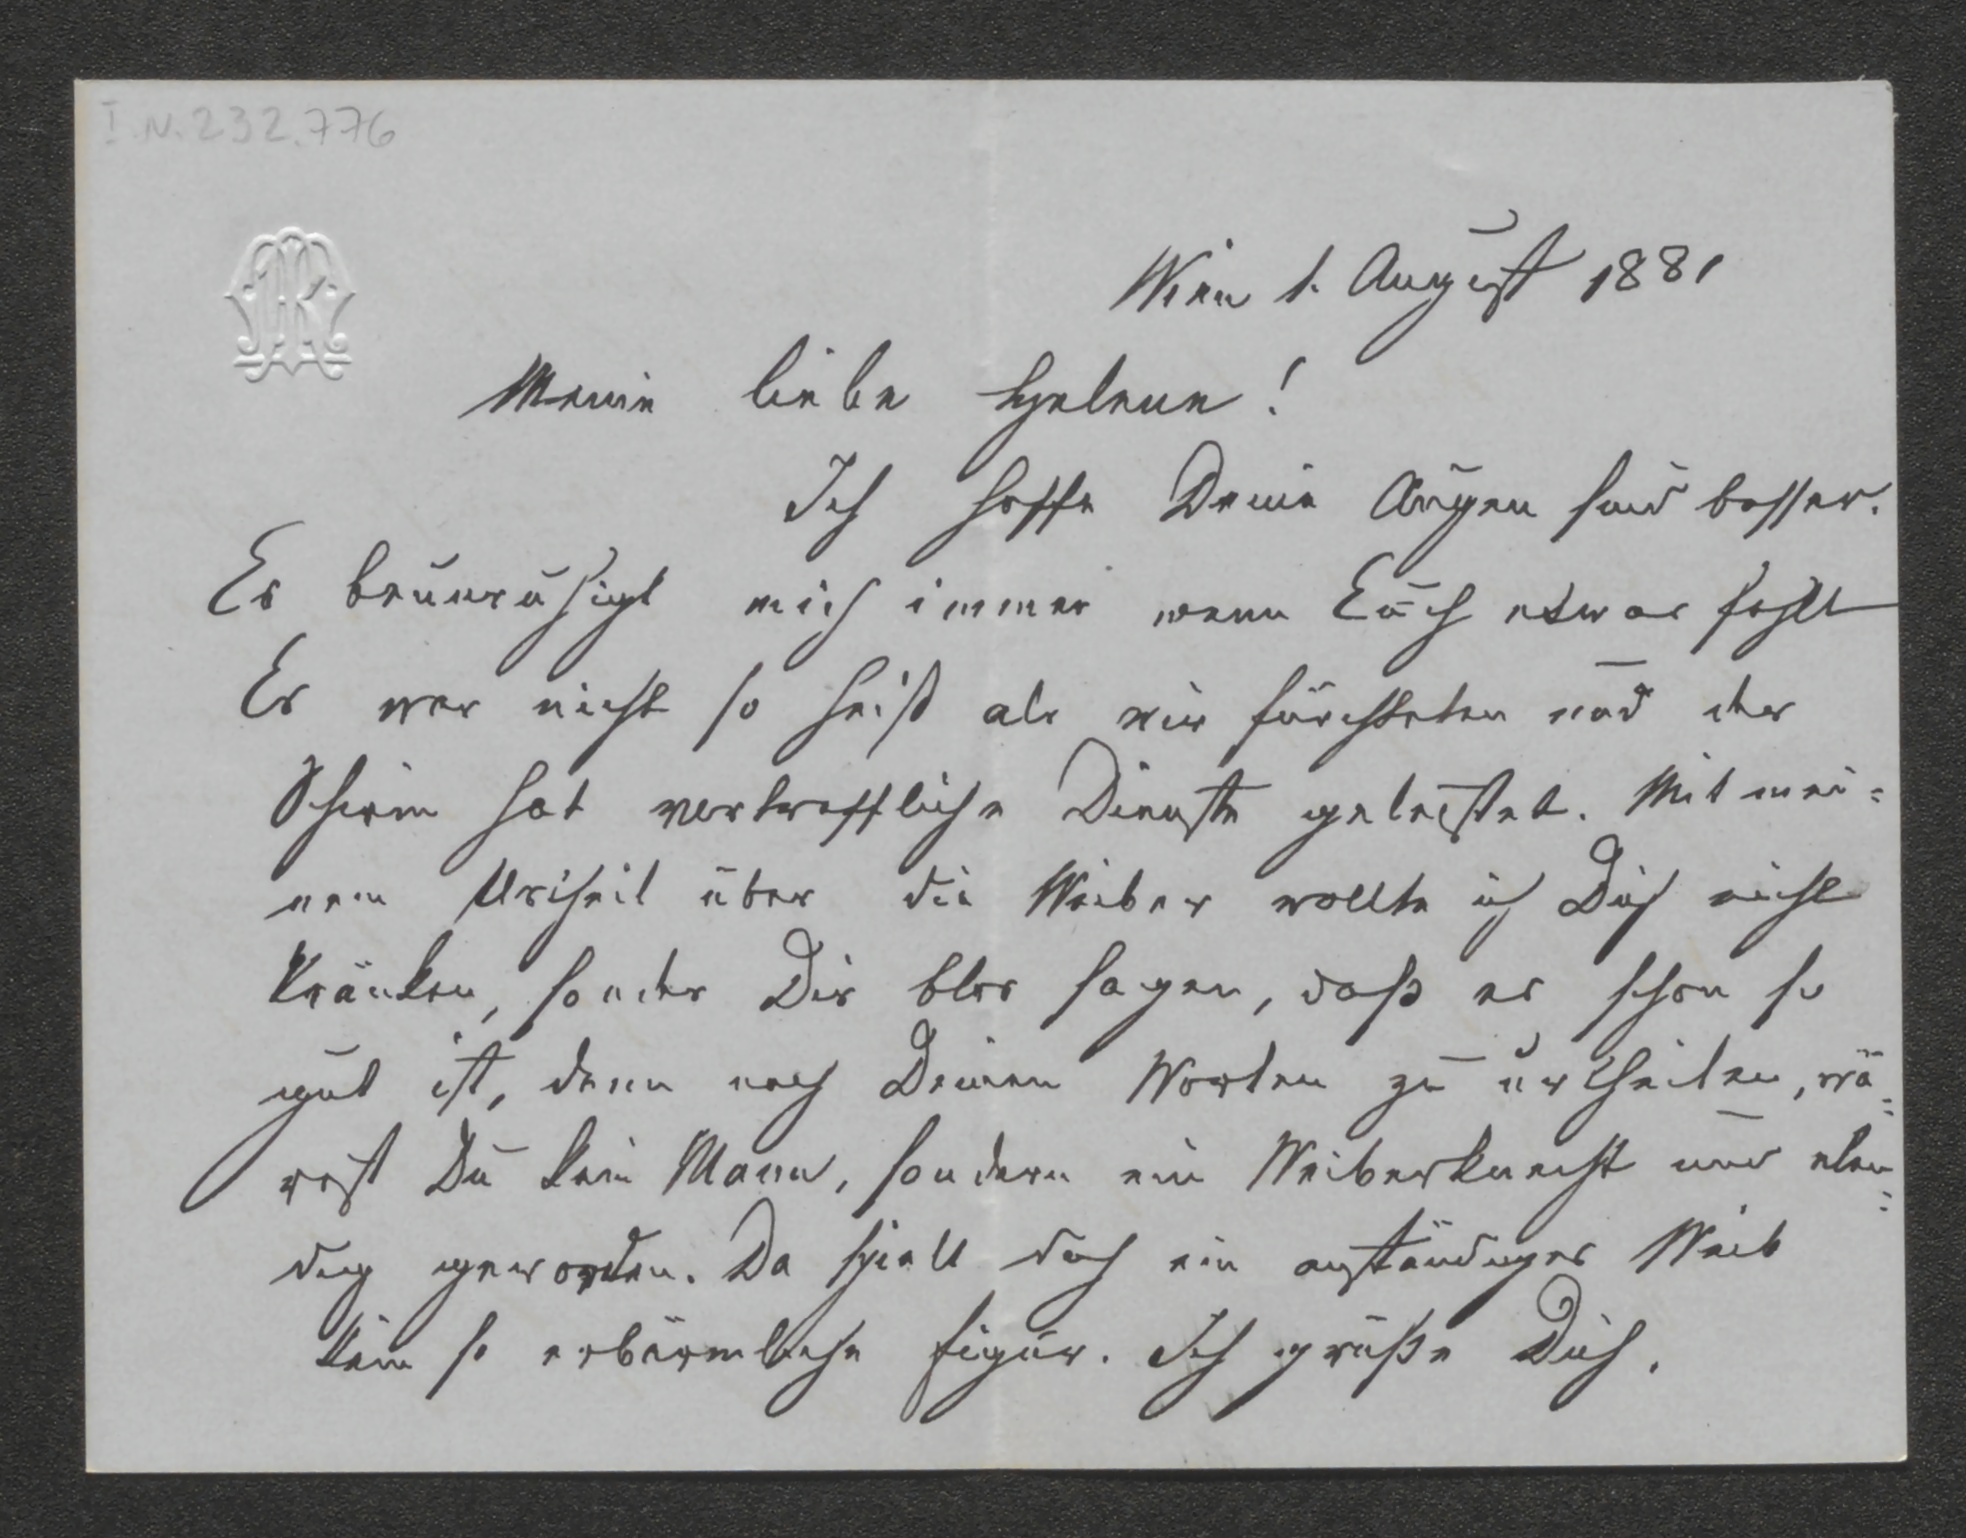 I.N. 232.776
Wien 1. August 1881
Meine liebe Helene!
Ich hoffe Deine Augen sind besser.
Es beunruhigt mich immer wenn Euch etwas fehlt
Es war nicht so heiß als wir fürchteten und der
Schirm hat vortreffliche Dienste geleistet. Mit mei=
nem Urtheil über die Weiber wollte ich Dich nicht
kränken, sonder Dir blos sagen, daß es schon so
gut ist, denn nach Deinen Worten zu urtheilen, wä=
rest Du kein Mann, sondern ein Weiberknecht und elen=
dig geworden. Da spielt doch ein anständiges Weib
kein so erbärmliche Figur. Ich grüße Dich.